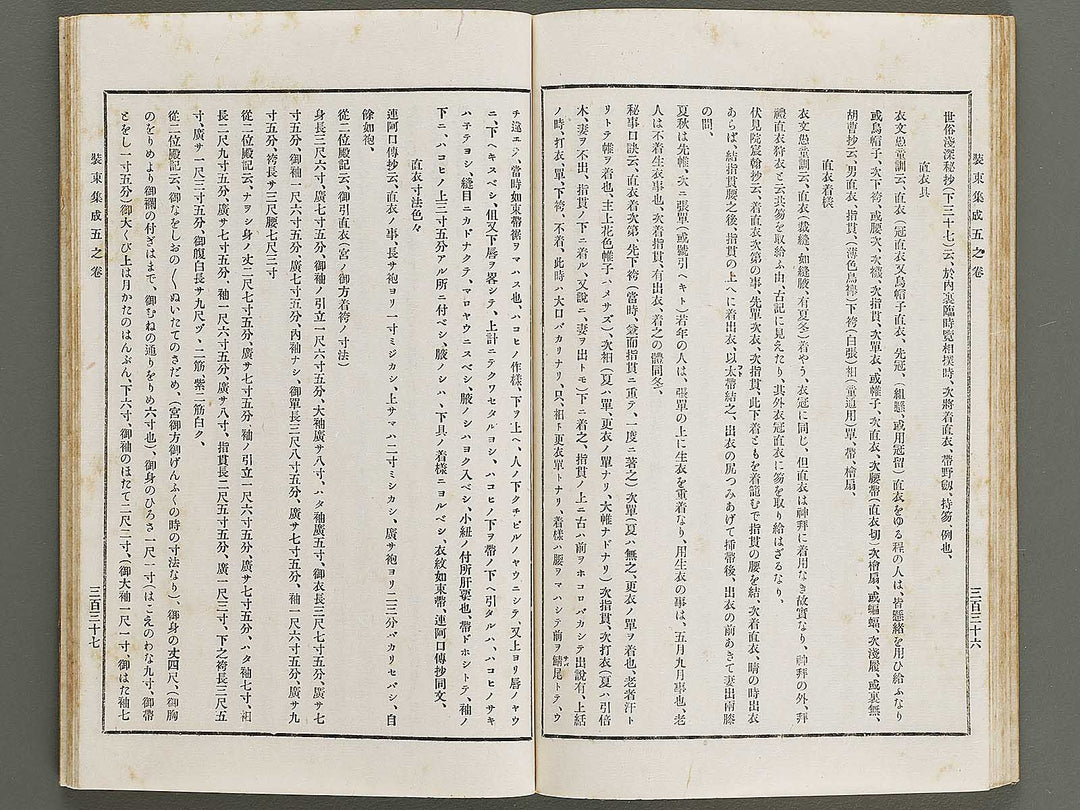 装束集成五之巻
三百三十六
世俗淺深秘抄(下三十七)云、於内裏臨時覽相撲時、次將着直衣、帶野劔、持笏、例也、
直衣具
衣文愚童訓云、直衣(冠直衣又烏帽子直衣、先冠、(組懸、或用冠留)直衣をゆる程の人は、皆懸緒を用ひ給ふなり
或烏帽子、次下袴、或腰次、次襪、次指貫、次單衣、或帷子、次直衣、次腰帶(直衣切)次檜扇、或蝙蝠、次淺履、或裏無、
胡曹抄云、男直衣、指貫、(薄色鳥襷)下袴(白張)衵(童通用)單、帶、檜扇、
直衣着樣
衣文愚童訓云、直衣(裁縫、如縫腋、有夏冬)着やう、衣冠に同じ、但直衣は神拜に着用なき故實なり、神拜の外、拜
禮直衣狩衣と云共笏を取給ふ由、古記に見えたり、其外衣冠直衣に笏を取り給はざるなり、
伏見院宸翰抄云、着直衣次第の事、先單衣、次指貫、此下着ともを着籠むで指貫の腰を結、次着直衣、晴の時出衣
あらば、結指貫腰之後、指貫の上へに着出衣、以太帶結之、出衣の尻つみあげて挿帶後、出衣の前あきて妻出兩膝
の間、
夏秋は先帷、次一張單(或號引ヘキト)若年の人は、張單の上に生衣を重着なり、用生衣の事は、五月九月事也、老
人は不着生衣事也、次着指貫、有出衣、着之の體同冬、
秘事口訣云、直衣着次第、先下袴(當時、㒰而指貫ニ重テ、一度ニ著之)次單(夏ハ無之、更衣ノ單ヲ着也、老者汗ト
リトテ帷ヲ着也、主上花色帷子ハメサズ)、次衵(夏ハ單、更衣ノ單ナリ、大帷ナドナリ)次指貫、次打衣(夏ハ引倍
木、妻ヲ不出、指貫ノ下ニ着ル、又說ニ、妻ヲ出トモ)下ニ着之、指貫ノ上ニ右ハ前ヲホコロバカシテ出說有、上結
ノ時、打衣、單、下袴、不着、此時ハ大口バカリナリ、只、衵ト更衣單トナリ、着樣ハ腰ヲマハシテ前ヲ鯖尾トテ、ウ
チ違エジ、當時如束帶裾ヲマハス也、ハコヒノ作樣、下ヲ上ヘ、人ノ下クチビルノヤウニシテ、又上ヨリ唇ノヤウ
ニ、下ヘキスベシ、但又下唇ヲ畧シテ、上計ニテクワセタルヨシ、ハコヒノ下ヲ帶ノ下ヘ引タルハ、ハコヒノサキ
ハ子テヨシ、縫目ニカドナクテ、マロヤウニスベシ、腋ノシハヨク入ベシ、小紐ノ付所肝要也、帶ドホシトテ、袖ノ
下ニ、ハコヒノ上三寸五分アル所ニ付ベシ、腋ノシハ、下具ノ着樣ニヨルベシ、衣紋如束帶、連阿口傳抄同文、
直衣寸法色々
連阿口傳抄云、直衣ノ事、長サ袍ヨリ一寸ミジカシ、上サマハ二寸ミシカシ、廣サ袍ヨリ二三分バカリセバシ、自
餘如袍、
從二位殿記云、御引直衣(宮ノ御方着袴ノ寸法)
身長三尺六寸、廣七寸五分、御袖ノ引立一尺六寸五分、大袖廣サ八寸、ハタ袖廣五寸、御衣長三尺七寸五分、廣サ七
寸五分、御袖一尺六寸五分、廣七寸五分、内袖ナシ、御單長三尺八寸五分、廣サ七寸五分、袖一尺六寸五分、廣サ九
寸五分、袴長サ三尺腰七尺三寸
從二位殿記云、ナヲシ身ノ丈二尺七寸五分、廣サ七寸五分 袖ノ引立一尺六寸五分、廣サ七寸五分、ハタ袖七寸、衵
長二尺九寸五分、廣サ七寸五分、袖一尺六寸五分、廣サ八寸、指貫長二尺五寸五分、廣一尺三寸、下之袴長三尺五
寸、廣サ一尺三寸五分、御腹白長サ九尺ヅ、二筋、紫二筋白ク、
從二位殿記云、御なをしおの〱ぬいたてのさだめ、(宮御方御げんふくの時の寸法なり)、御身の丈四尺、(御胸
のをりめより御襴の付ぎはまで、御むねの通りをりめ六寸也)、御身のひろさ一尺一寸(はこえのわな九寸、御帶
とをし一寸五分)御大くび上は月かたのはんぶん、下六寸、御袖のほたて二尺二寸、(御大袖一尺一寸、御はた袖七
装束集成五之巻
三百三十七